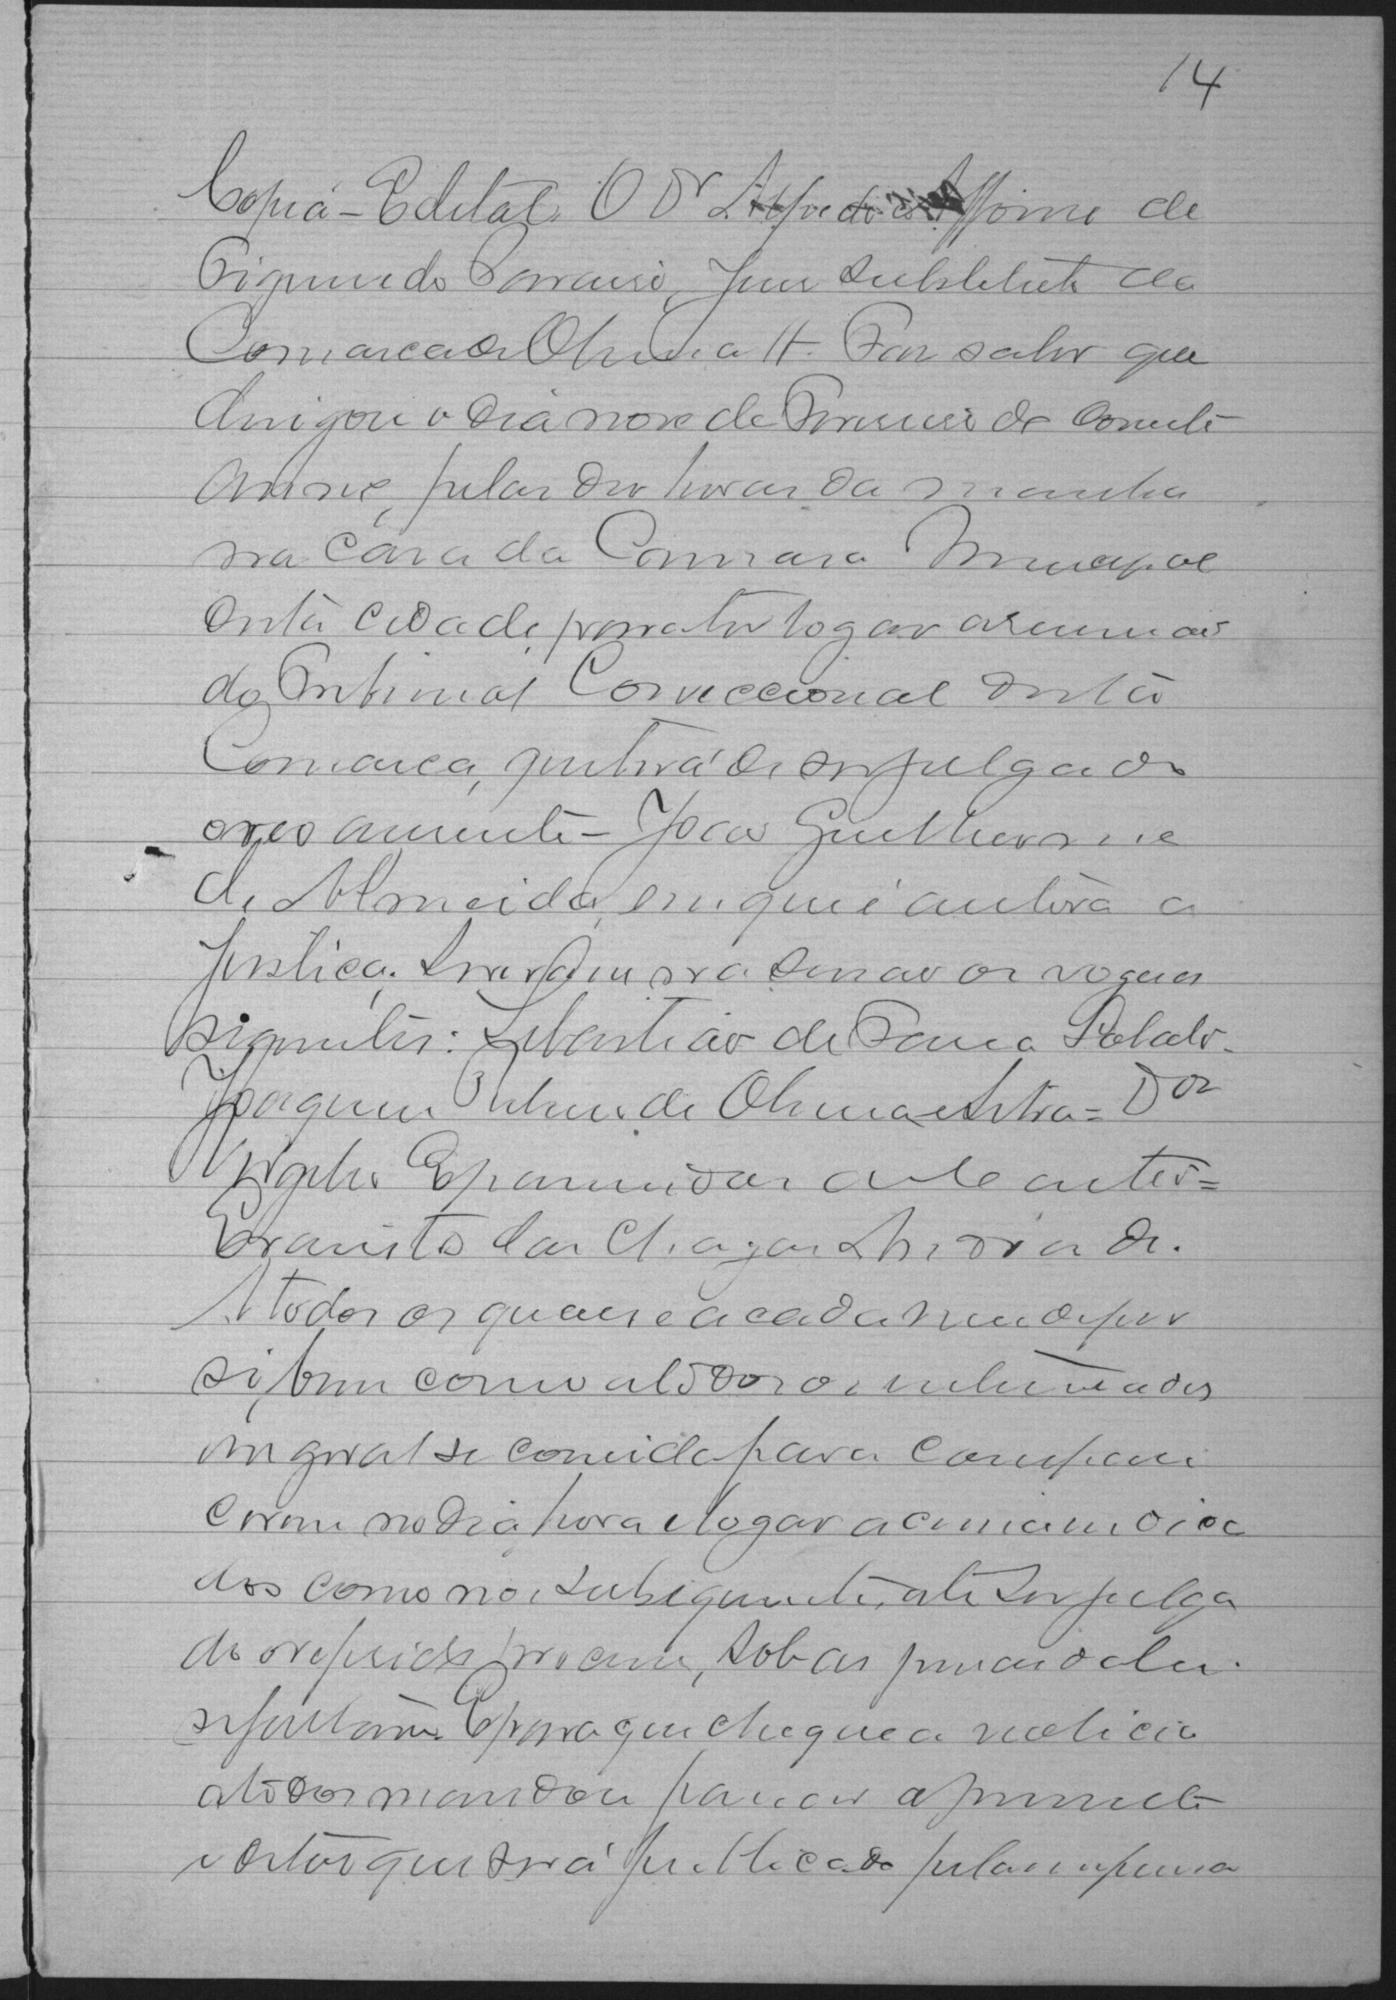 14
Copia - Edital. O Dr Affonso de
Juis substituto da
Comarca de Olinda &. Faz saber que
o dia nove de Fevereiro do corrente
anno, pelas dez horas da manhã
na casa da Camara Municipal
desta cidade, para ter logar a reuniao
do Tribunal Correccional desta
Comarca, que terá de ser julgado
o reo ausente - João Guilherme
de Almeida, em que é autora a
Justiça. Servirão na sessão os vogaes
siguintes: Sebastião de Salado.
Joaquim de Olinda = Dor
Virgilio =
Evaristo das Chagas Andrade.
A todos os quaes e a cada um de per
si, bem como a todos os interessados
em geral se convida para compare
cerem no dia, hora e logar acima indica
dos como nos subsiquentes, até ser julga
do o referido processo, sob as penas da lei
se faltarem. E para que chegue a noticia
a todos mandou passar o presente
edital que será publicado pela imprensa